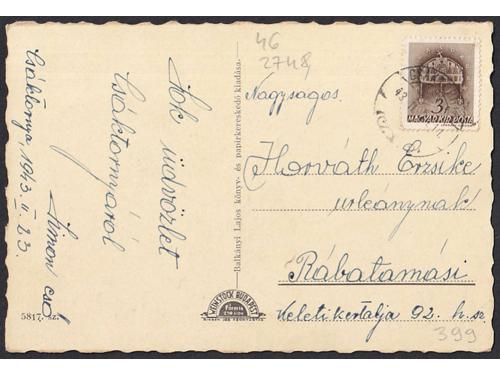 Csáktornya, 1943. II. 23.
Sok üdvözlet
Csáktornyáról
Simon
5817. sz.
Balkányi Lajos könyv- és papirkereskedő kiadása.
WEINSTOCK BUDAPEST
46
2748
3
MAGYAR KIR. POSTA
Nagyságos
Horváth Erzsike
urleánynak
Rábatamási
Keletikertalja 92. h. sz.
399